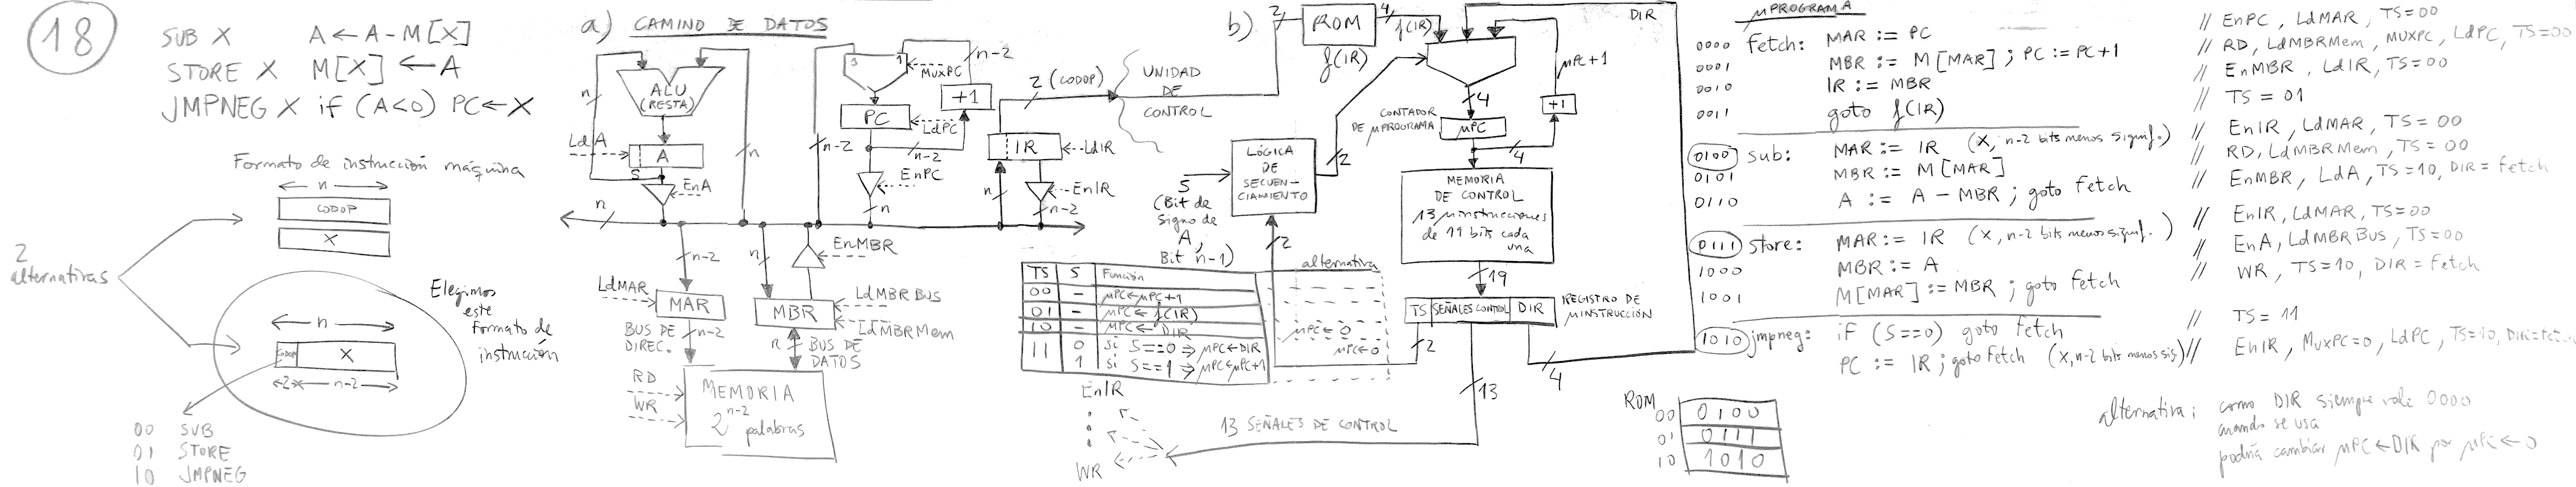 18
SUB X A ← A - M[X]
STORE X M[X] ← A
JMPNEG X if (A<0) PC ← X
Formato de instrucción máquina
n
CODOP
X
2 alternativas
Elegimos este formato de instrucción
n
CODOP X
2 n-2
00 SUB
01 STORE
10 JMPNEG
a) CAMINO DE DATOS
ALU (RESTA)
n
LdA
A
S
EnA
n
n
n-2
0 1
MUXPC
n-2
+1
PC
LdPC
n-2
EnPC
n
2 (CODOP)
UNIDAD DE CONTROL
IR
LdIR
n
EnIR
n-2
n-2
n
EnMBR
LdMAR
MAR
MBR
LdMBR BUS
LdMBRMem
BUS DE DIREC.
n-2
n
BUS DE DATOS
RD
WR
MEMORIA
2^n-2 palabras
b)
2
ROM
f(IR)
4
f(IR)
DIR
μPC+1
4
+1
CONTADOR DE μPROGRAMA
μPC
4
2
LÓGICA DE SECUENCIAMIENTO
S
(Bit de signo de A, Bit n-1)
2
MEMORIA DE CONTROL
13 μinstrucciones de 19 bits cada una
19
TS SEÑALES CONTROL DIR
REGISTRO DE μINSTRUCCIÓN
2
13
4
TS S Función
alternativa
00 - μPC←μPC+1
01 - μPC←f(IR)
10 - μPC←DIR
μPC←0
11 0 si S==0 ⇒ μPC←DIR
μPC←0
1 si S==1 ⇒ μPC←μPC+1
EnIR
WR
13 SEÑALES DE CONTROL
ROM
00 0100
01 0111
10 1010
μPROGRAMA
0000 fetch: MAR := PC // EnPC, LdMAR, TS=00
0001 MBR := M[MAR]; PC := PC+1 // RD, LdMBRMem, MUXPC, LdPC, TS=00
0010 IR := MBR // EnMBR, LdIR, TS=00
0011 goto f(IR) // TS = 01
0100 sub: MAR := IR (X, n-2 bits menos signif.) // EnIR, LdMAR, TS = 00
0101 MBR := M[MAR] // RD, LdMBRMem, TS = 00
0110 A := A - MBR ; goto fetch // EnMBR, LdA, TS=10, DIR = fetch
0111 store: MAR := IR (X, n-2 bits menos signif.) // EnIR, LdMAR, TS=00
1000 MBR := A // EnA, LdMBR BUS, TS=00
1001 M[MAR] := MBR ; goto fetch // WR, TS=10, DIR = fetch
1010 jmpneg: if (S==0) goto fetch // TS = 11
PC := IR ; goto fetch (X, n-2 bits menos sig.) // EnIR, MuxPC=0, LdPC, TS=10,
alternativa: como DIR siempre vale 0000
cuando se usa
podría cambiar μPC←DIR por μPC←0